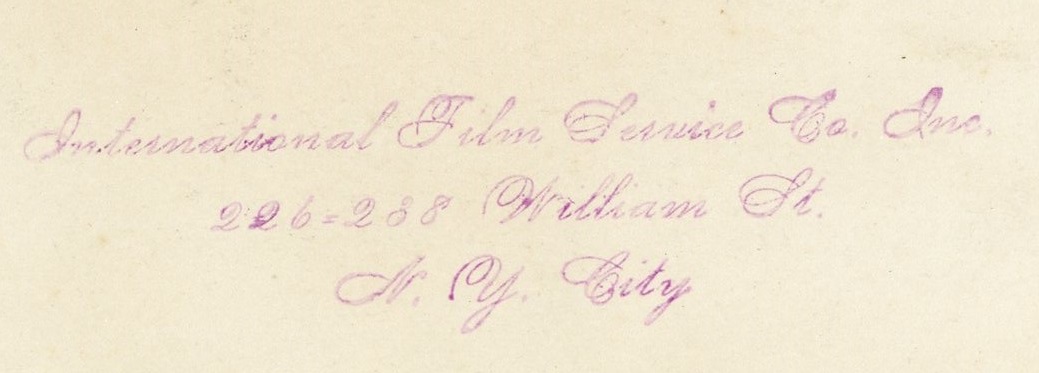 International Film Service Co. Inc.
226=238 William St.
N. Y. City